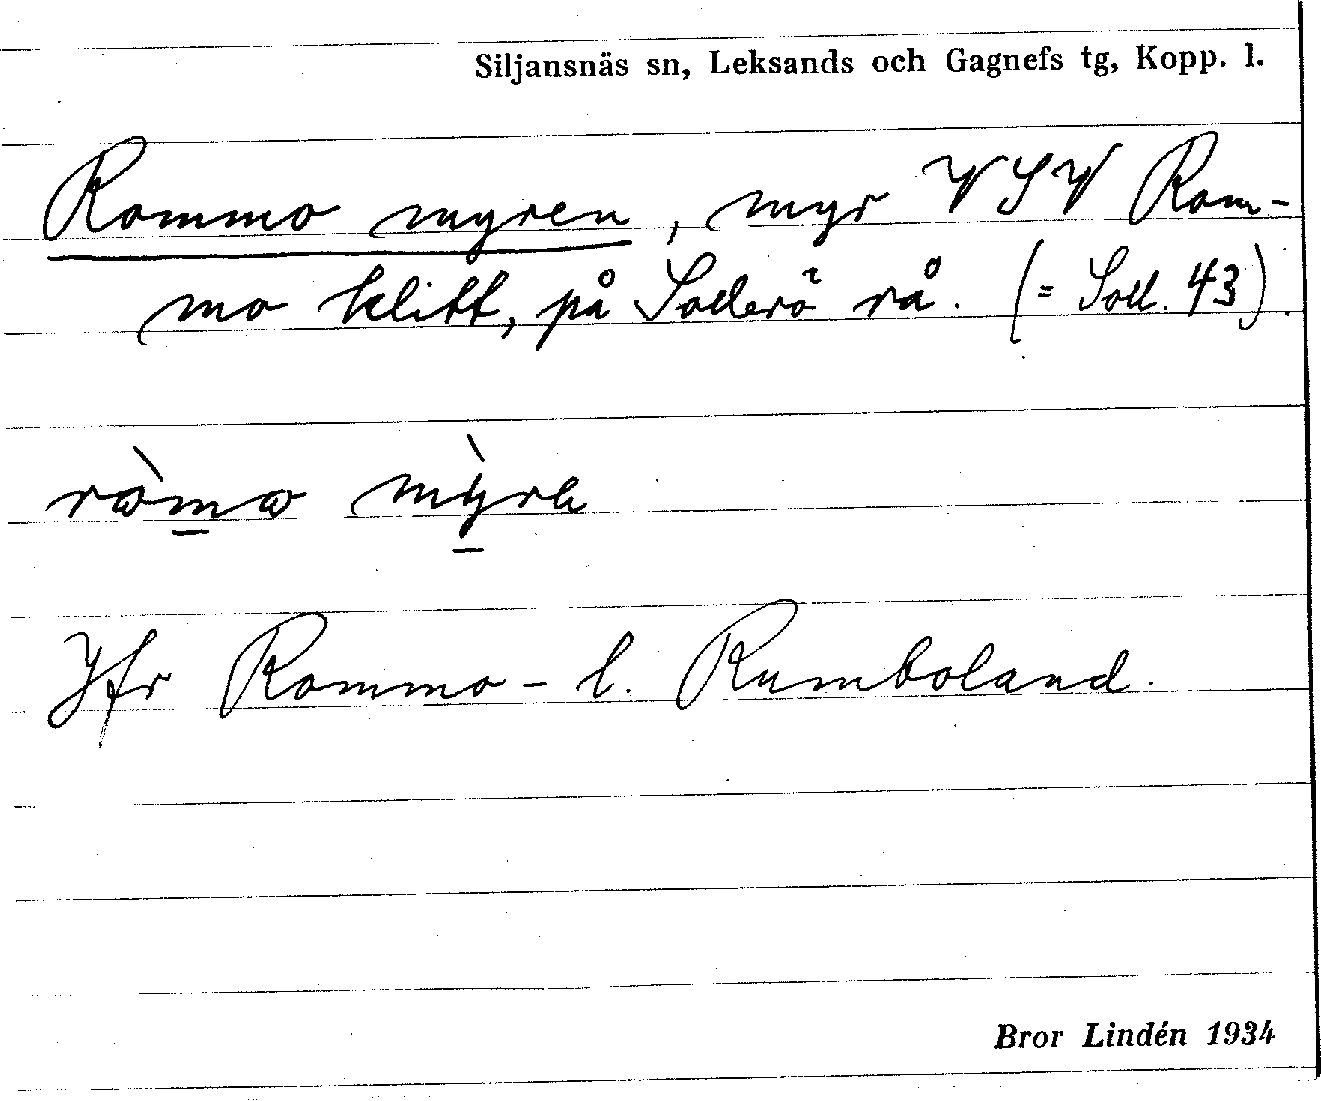 Siljansnäs sn, Leksands och Gagnefs tg, Kopp. l.
Rommo myren, myr VSV Rom-
mo klitt, på Sollerö rå. (= Soll. 43).
ròmo mỳrɳ
Jfr Rommo- l. Rumboland.
Bror Lindén 1934